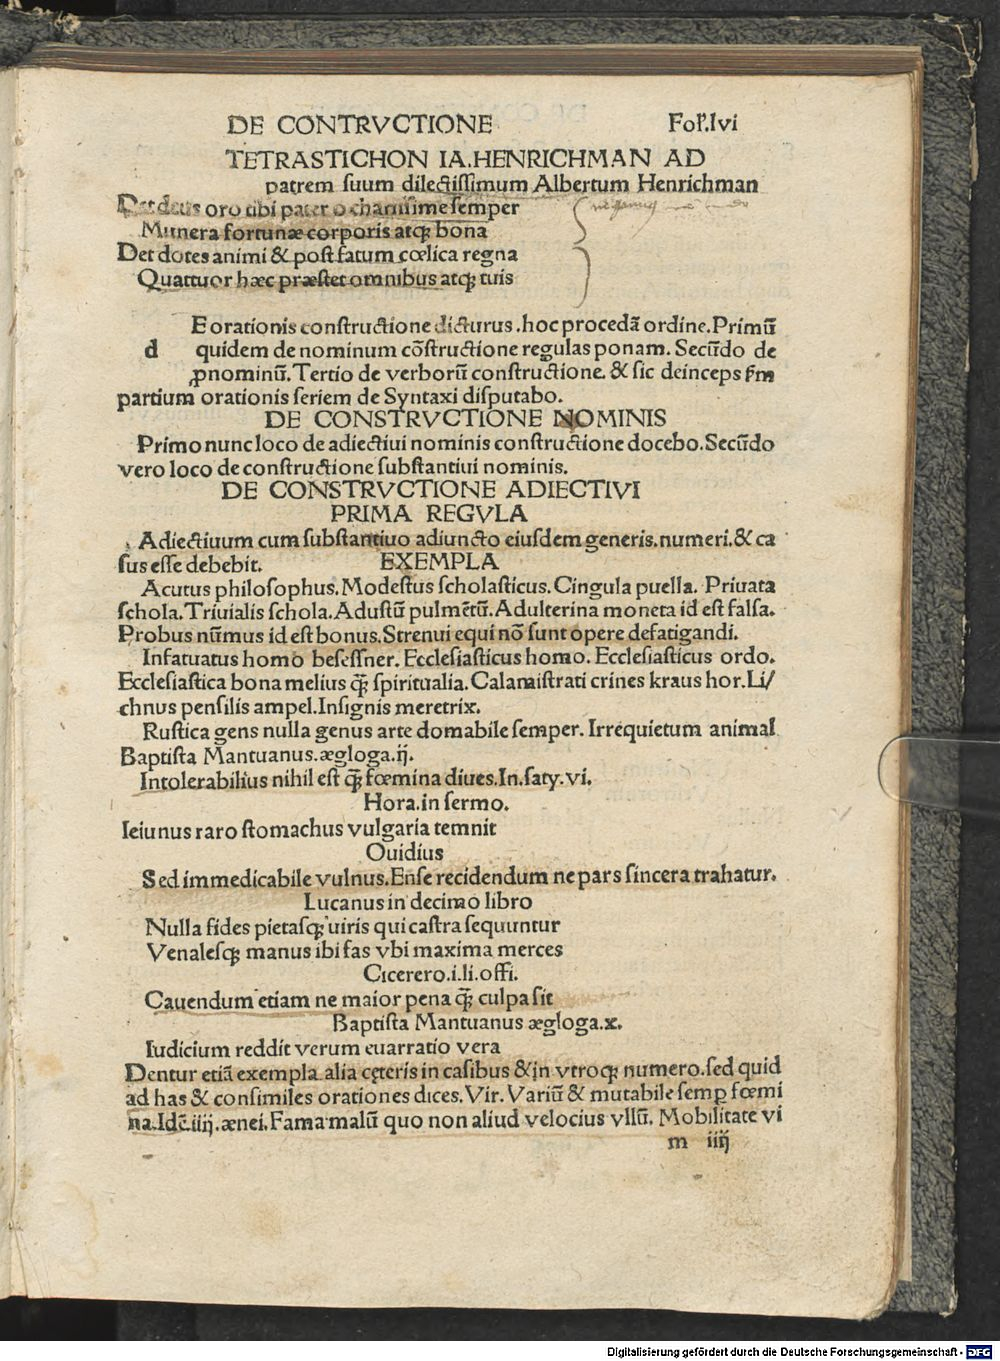 DE CONTRVCTIONE Fol.lvi
TETRASTICHON IA.HENRICHMAN AD
patrem suum dilectissimum Albertum Henrichman
Det deus oro tibi pater o charissime semper
Munera fortunæ corporis atqꝫ bona
Det dotes animi & post fatum cœlica regna
Quattuor hæc præstet omnibus atqꝫ tuis
E orationis constructione dicturus .hoc procedā ordine.Primū
d quidem de nominum cōstructione regulas ponam. Secūdo de
ꝓnominū. Tertio de verborū constructione. & sic deinceps ẜm
partium orationis seriem de Syntaxi disputabo.
DE CONSTRVCTIONE NOMINIS
Primo nunc loco de adiectiui nominis constructione docebo. Secūdo
vero loco de constructione substantiui nominis.
DE CONSTRVCTIONE ADIECTIVI
PRIMA REGVLA
Adiectiuum cum substantiuo adiuncto eiusdem generis.numeri.& ca
sus esse debebit. EXEMPLA
Acutus philosophus. Modestus scholasticus. Cingula puella. Priuata
schola. Triuialis schola. Adustū pulmētū. Adulterina moneta id est falsa.
Probus nūmus id est bonus. Strenui equi nō sunt opere defatigandi.
Infatuatus homo besessner. Ecclesiasticus homo. Ecclesiasticus ordo.
Ecclesiastica bona melius qꝫ̄ spiritualia. Calamistrati crines kraus hor. Li/
chnus pensilis ampel. Insignis meretrix.
Rustica gens nulla genus arte domabile semper. Irrequietum animal
Baptista Mantuanus.ægloga.ij.
Intolerabilius nihil est qꝫ̄ fœmina diues. In.saty.vi.
Hora.in sermo.
Ieiunus raro stomachus vulgaria temnit
Ouidius
Sed immedicabile vulnus. Ense recidendum ne pars sincera trahatur.
Lucanus in decimo libro
Nulla fides pietasqꝫ uiris qui castra sequuntur
Venalesqꝫ manus ibi fas vbi maxima merces
Cicerero.i.li.offi.
Cauendum etiam ne maior pena qꝫ̄ culpa sit
Baptista Mantuanus ægloga.x.
Iudicium reddit verum euarratio vera
Dentur etiā exempla alia cęteris in casibus & in vtroqꝫ numero. sed quid
ad has & consimiles orationes dices. Vir. Variū & mutabile semꝑ fœmi
na. Idē.iiij.ænei. Fama malū quo non aliud velocius vllū. Mobilitate vi
m iiij
Digitalisierung gefördert durch die Deutsche Forschungsgemeinschaft - DFG